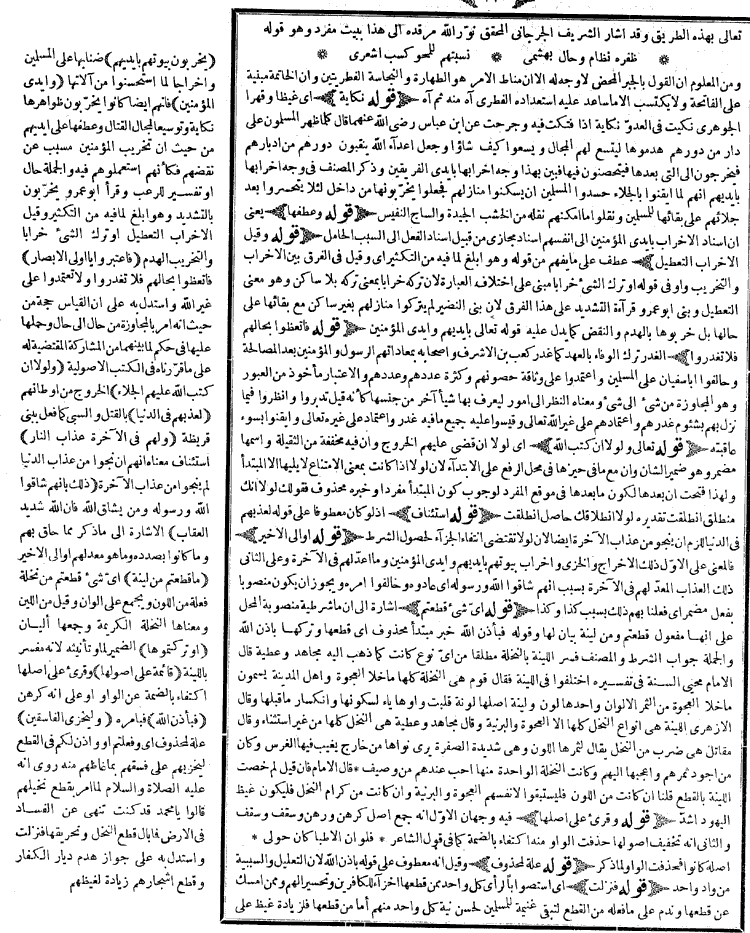 تعالى بهذه الطريق وقد اشار الشريف الجرجانى المحقق نور الله مرقده الى هذا ببيت مفرد وهو قوله
ظفره نظام وحال بهشمى * نسبتهم للمحو كسب اشعرى
ومن المعلوم ان القول بالجبر المحض لاوجه له الا ان مناط الامر هو الطهارة والنجاسة الفطريتين وان الخاتمة مبنية
على الفاتحة ولا يكتسب الا ما ساعد عليه استعداده الفطرى آه منه ثم آه (قوله نكاية) اى غيظا وقهرا
الجوهرى نكيت فى العدو نكاية اذا قتلت فيه وجرحت عن ابن عباس رضى الله عنهما قال كلما ظهر المسلمون على
دار من دورهم هدموها ليتسع لهم المجال ويسعوا كيف شاؤا وجعل اعداء الله ينقبون دورهم من ادبارهم
فيخرجون الى التى بعدها فيتحصنون فيها فبين بهذا وجه اخرابها بايدى الفريقين وذكر المصنف فى وجه اخرابها
بايديهم انهم لما ايقنوا بالجلاء حسدوا المسلمين ان يسكنوا منازلهم فجعلوا يخربونها من داخل لئلا يتحسروا بعد
جلائهم على بقائها للمسلمين و نقلوا ما امكنهم نقله من الخشب الجيدة والساج النفيس (قوله وعطفها) يعنى
ان اسناد الاخراب بايدى المؤمنين الى انفسهم اسناد مجازى من قبيل اسناد الفعل الى السبب الحامل (قوله وقيل
الاخراب التعطيل) عطف على مايفهم من قوله وهو ابلغ لما فيه من التكثير اى وقيل فى الفرق بين الاخراب
والتخريب واو فى قوله او ترك الشئ خرابا مبنى على اختلاف العبارة لان تركه خرابا بمعنى تركه بلا ساكن وهو معنى
التعطيل و بنى ابو عمرو قرآءة التشديد على هذا الفرق لان بنى النضير لم يتركوا منازلهم بغير ساكن مع بقائها على
حالها بل خربوها بالهدم و النقض كما يدل عليه قوله تعالى بايديهم وايدى المؤمنين (قوله فاتعظوا بحالهم
فلا تغدروا) الغدر ترك الوفاء بالعهد كما غدر كعب بن الاشرف واصحابه بمعاداتهم الرسول والمؤمنين بعد المصالحة
وحالفوا اباسفيان على المسلمين و اعتمدوا على وثاقة حصونهم وكثرة عددهم وعددهم والاعتبار مأخوذ من العبور
وهو المجاوزة من شئ الى شئ ومعناه النظر الى امور ليعرف بها شيأ آخر من جنسها كأنه قيل تدبروا وانظروا فيما
نزل بهم بشئوم غدرهم واعتمادهم على غير الله تعالى وقيسوا عليه جميع مافيه غدر واعتماد على غيره تعالى وايقنوا بسوء
عاقبته (قوله تعالى ولولا ان كتب الله) اى لولا ان قضى عليهم الخروج وان فيه مخففة من الثقيلة و اسمها
مضمر وهو ضمير الشان وان مع مافى حيزها فى محل الرفع على الابتدآء لان لولا اذا كانت بمعنى الامتناع لايليها الا المبتدأ
ولهذا فتحت ان بعدها لكون مابعدها فى موقع المفرد لوجوب كون المبتدأ مفردا وخبره محذوف فقولك لولا انك
منطلق انطلقت تقديره لولا انطلاقك حاصل انطلقت (قوله استئناف) اذ لو كان معطوفا على قوله لعذبهم
فى الدنيا للزم ان ينجو من عذاب الآخرة ايضا لان لولا تقتضى انتفاء الجزآء لحصول الشرط (قوله او الى الاخير)
فالمعنى على الاول ذلك الاخراج والخزى واخراب بيوتهم بايديهم و ايدى المؤمنين وما اعد لهم فى الآخرة وعلى الثانى
ذلك العذاب المعد لهم فى الآخرة بسبب انهم شاقوا الله ورسوله اى عادوه وخالفوا امره ويجوز ان يكون منصوبا
بفعل مضمر اى فعلنا بهم ذلك بسبب كذا وكذا (قوله اى شئ قطعتم) اشارة الى ان ما شرطية منصوبة المحل
على انها مفعول قطعتم ومن لينة بيان لها وقوله فبأذن الله خبر مبتدأ محذوف اى قطعها و تركها باذن الله
والجملة جواب الشرط و المصنف فسر اللينة بالنخلة مطلقا من اى نوع كانت كما ذهب اليه مجاهد وعطية قال
الامام محيى السنة فى تفسيره اختلفوا فى اللينة فقال قوم هى النخلة كلها ماخلا العجوة و اهل المدينة يسمون
ماخلا العجوة من التمر الالوان واحدها لون و لينة اصلها لونة قلبت واوها ياء لسكونها و انكسار ماقبلها وقال
الازهرى اللينة هى انواع النخل كلها الا العجوة والبرنية وقال مجاهد وعطية هى النخل كلها من غير استثناء وقال
مقاتل هى ضرب من النخل يقال لثمرها اللون وهى شديدة الصفرة يرى نواها من خارج يغيب فيها الغرس وكان
من اجود تمرهم و اعجبها اليهم وكانت النخلة الواحدة منها احب عندهم من وصيف * قال الامام فان قيل لم خصت
اللينة بالقطع قلنا ان كانت من اللون فليستبقوا لانفسهم العجوة و البرنية وان كانت من كرام النخل فليكون غيظ
اليهود اشد (قوله وقرئ على اصلها) فيه وجهان الاول انه جمع اصل كرهن و رهن وسقف وسقف
والثانى انه تخفيف اصولها حذفت الواو منه اكتفاء بالضمة كما فى قول الشاعر * فلو ان الاطبا كان حولى *
اصله كانوا فحذفت الواو لما ذكر (قوله علة لمحذوف) وقيل انه معطوف على قوله باذن الله لان التعليل والسببية
من واد واحد (قوله فنزلت) اى استصوابا لرأى كل واحد ممن قطعها اخزآء للكافرين وتحسيرا لهم وممن امسك
عن قطعها وندم على مافعله من القطع لتبقى غنيمة للمسلمين لحسن نية كل واحد منهم أما من قطعها فلزيادة غيظ على
(يخربون بيوتهم بايديهم) ضنابها على المسلمين
واخراجا لما استحسنوا من آلاتها (وايدى
المؤمنين) فانهم ايضا كانوا يخربون ظواهرها
نكاية وتوسيعا لمجال القتال وعطفها على ايديهم
من حيث ان تخريب المؤمنين مسبب عن
نقضهم فكأنهم استعملوهم فيه والجملة حال
او تفسير للرعب وقرأ ابوعمرو يخربون
بالتشديد وهو ابلغ لمافيه من التكثير وقيل
الاخراب التعطيل اوترك الشئ خرابا
والتخريب الهدم (فاعتبروا يا اولى الابصار)
فاتعظوا بحالهم فلاتغدروا ولاتعتمدوا على
غير الله واستدل به على ان القياس حجة من
حيث انه امر بالمجاوزة من حال الى حال وحملها
عليها فى حكم لما بينهما من المشاركة المقتضية له
على ماقررناه فى الكتب الاصولية (ولولا ان
كتب الله عليهم الجلاء) الخروج من اوطانهم
(لعذبهم فى الدنيا) بالقتل و السبى كما فعل ببنى
قريظة (ولهم فى الآخرة عذاب النار)
استئناف معناه انهم ان نجوا من عذاب الدنيا
لم ينجوا من عذاب الآخرة (ذلك بانهم شاقوا
الله ورسوله ومن يشاق الله فان الله شديد
العقاب) الاشارة الى ماذكر مما حاق بهم
وماكانوا بصدده وماهو معد لهم او الى الاخير
(ماقطعتم من لينة) اى شئ قطعتم من نخلة
فعلة من اللون و يجمع على الوان وقيل من اللين
ومعناها النخلة الكريمة وجمعها أليان
(او تركتموها) الضمير لما وتأنيثه لانه مفسر
باللينة (قائمة على اصولها) وقرئ على اصلها
اكتفاء بالضمة عن الواو او على انه كرهن
(فبأذن الله) فبامره (وليخزى الفاسقين)
علة لمحذوف اى وفعلتم او واذن لكم فى القطع
ليخزيهم على فسقهم بما غاظهم منه روى انه
عليه الصلاة والسلام لما امر بقطع نخيلهم
قالوا يا محمد قد كنت تنهى عن الفساد
فى الارض فما بال قطع النخل و تحريقها فنزلت
واستدل به على جواز هدم ديار الكفار
وقطع اشجارهم زيادة لغيظهم